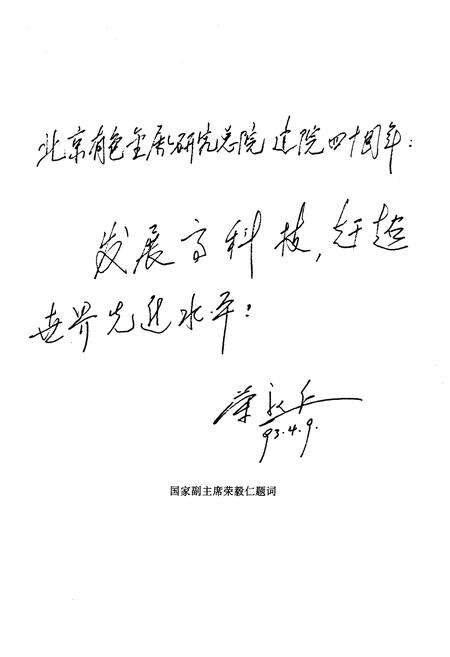 北京有色金属研究总院建院四十周年：
发展高科技，赶超
世界先进水平！
荣毅仁
93.4.9.
国家副主席荣毅仁题词